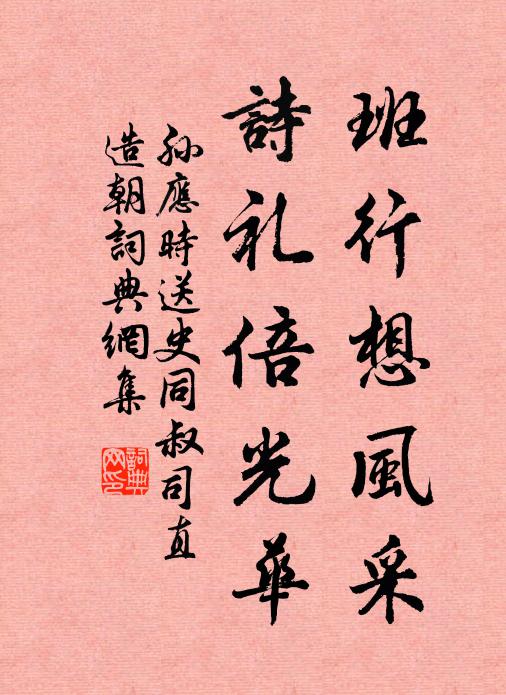 班行想風采
詩礼倍光華
孙應時送史同叔司直
造朝詞典網集
詞典
网印